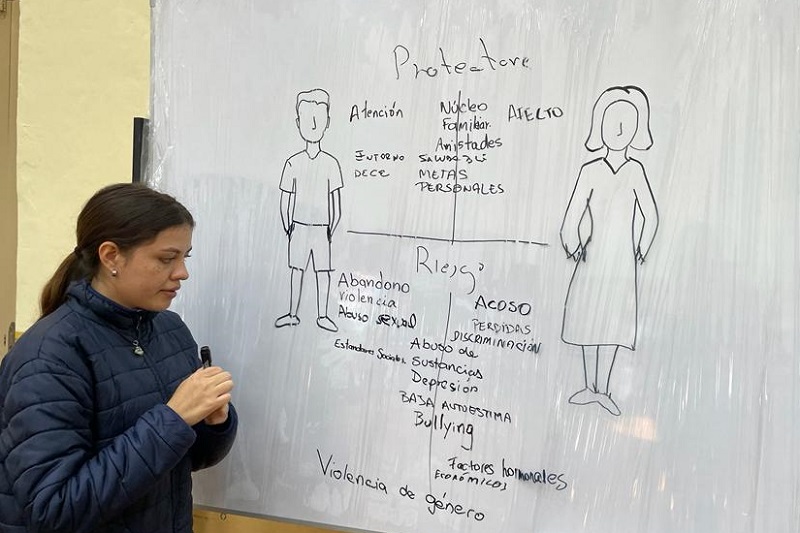 Protectore
Atención
Núcleo
Familiar
Amistades
AFECTO
ENTORNO
METAS
PERSONALES
Riesgo
Abandono
violencia
Abuso sexual
ACOSO
PERDIDAS
DISCRIMINACIÓN
Estandares Sociales
Abuso de
Sustancias
Depresión
BAJA AUTOESTIMA
Bullying
Factores hormonales
ECONÓMICOS
Violencia de género